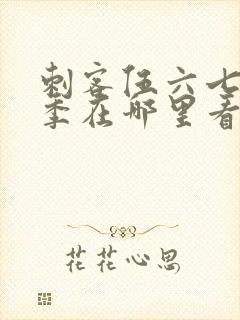 刺客伍六七
季在哪里看
花花心思